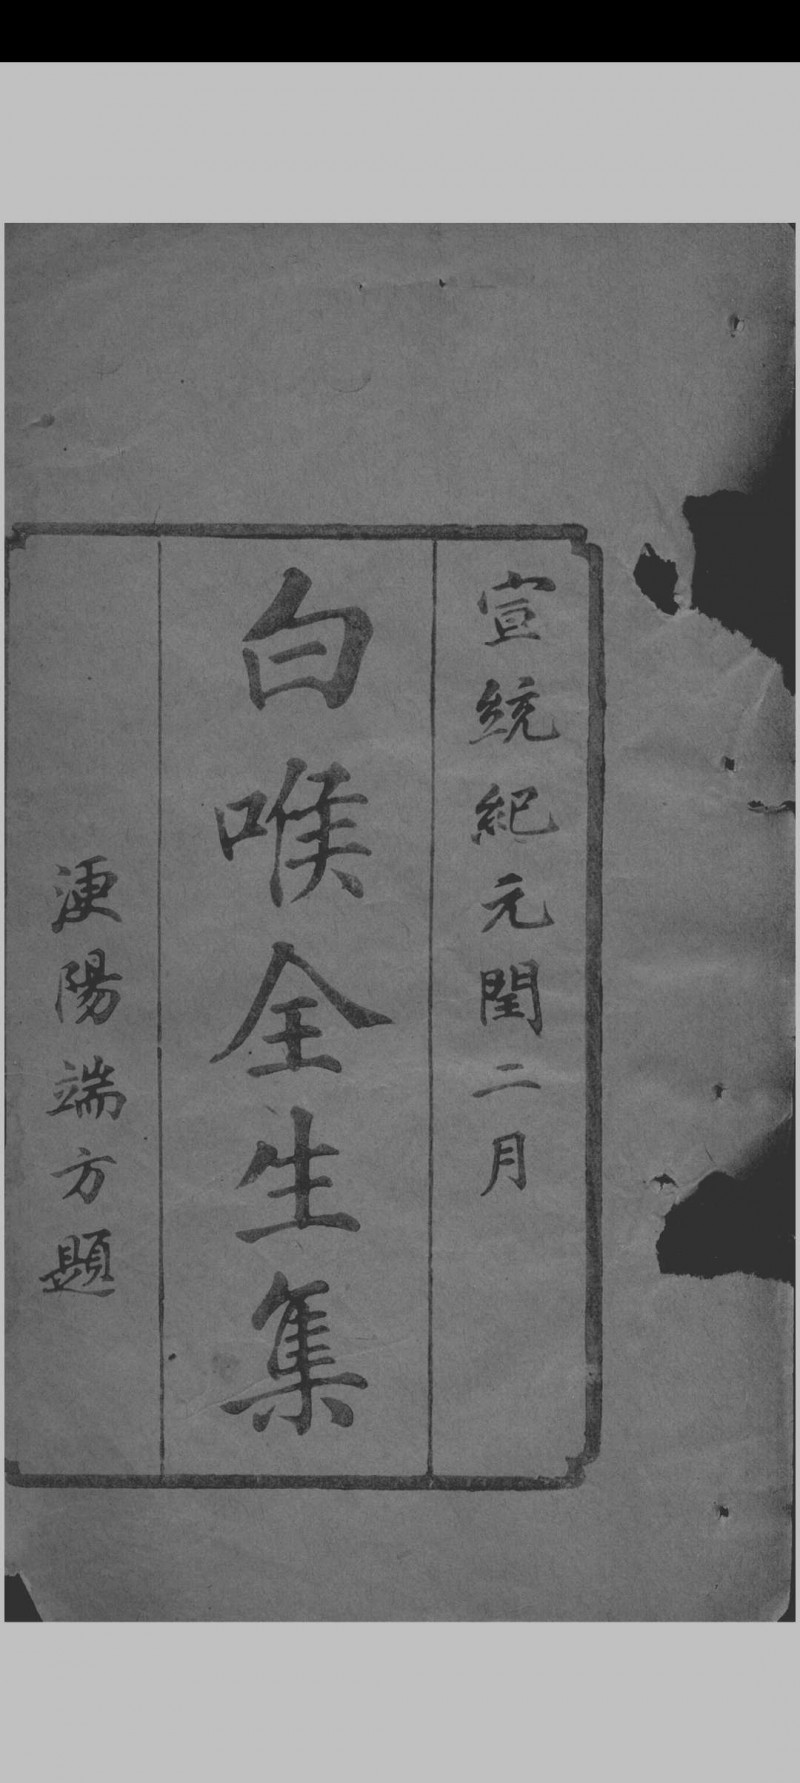 宣統紀元閏二月
白喉全生集
浭陽端方題